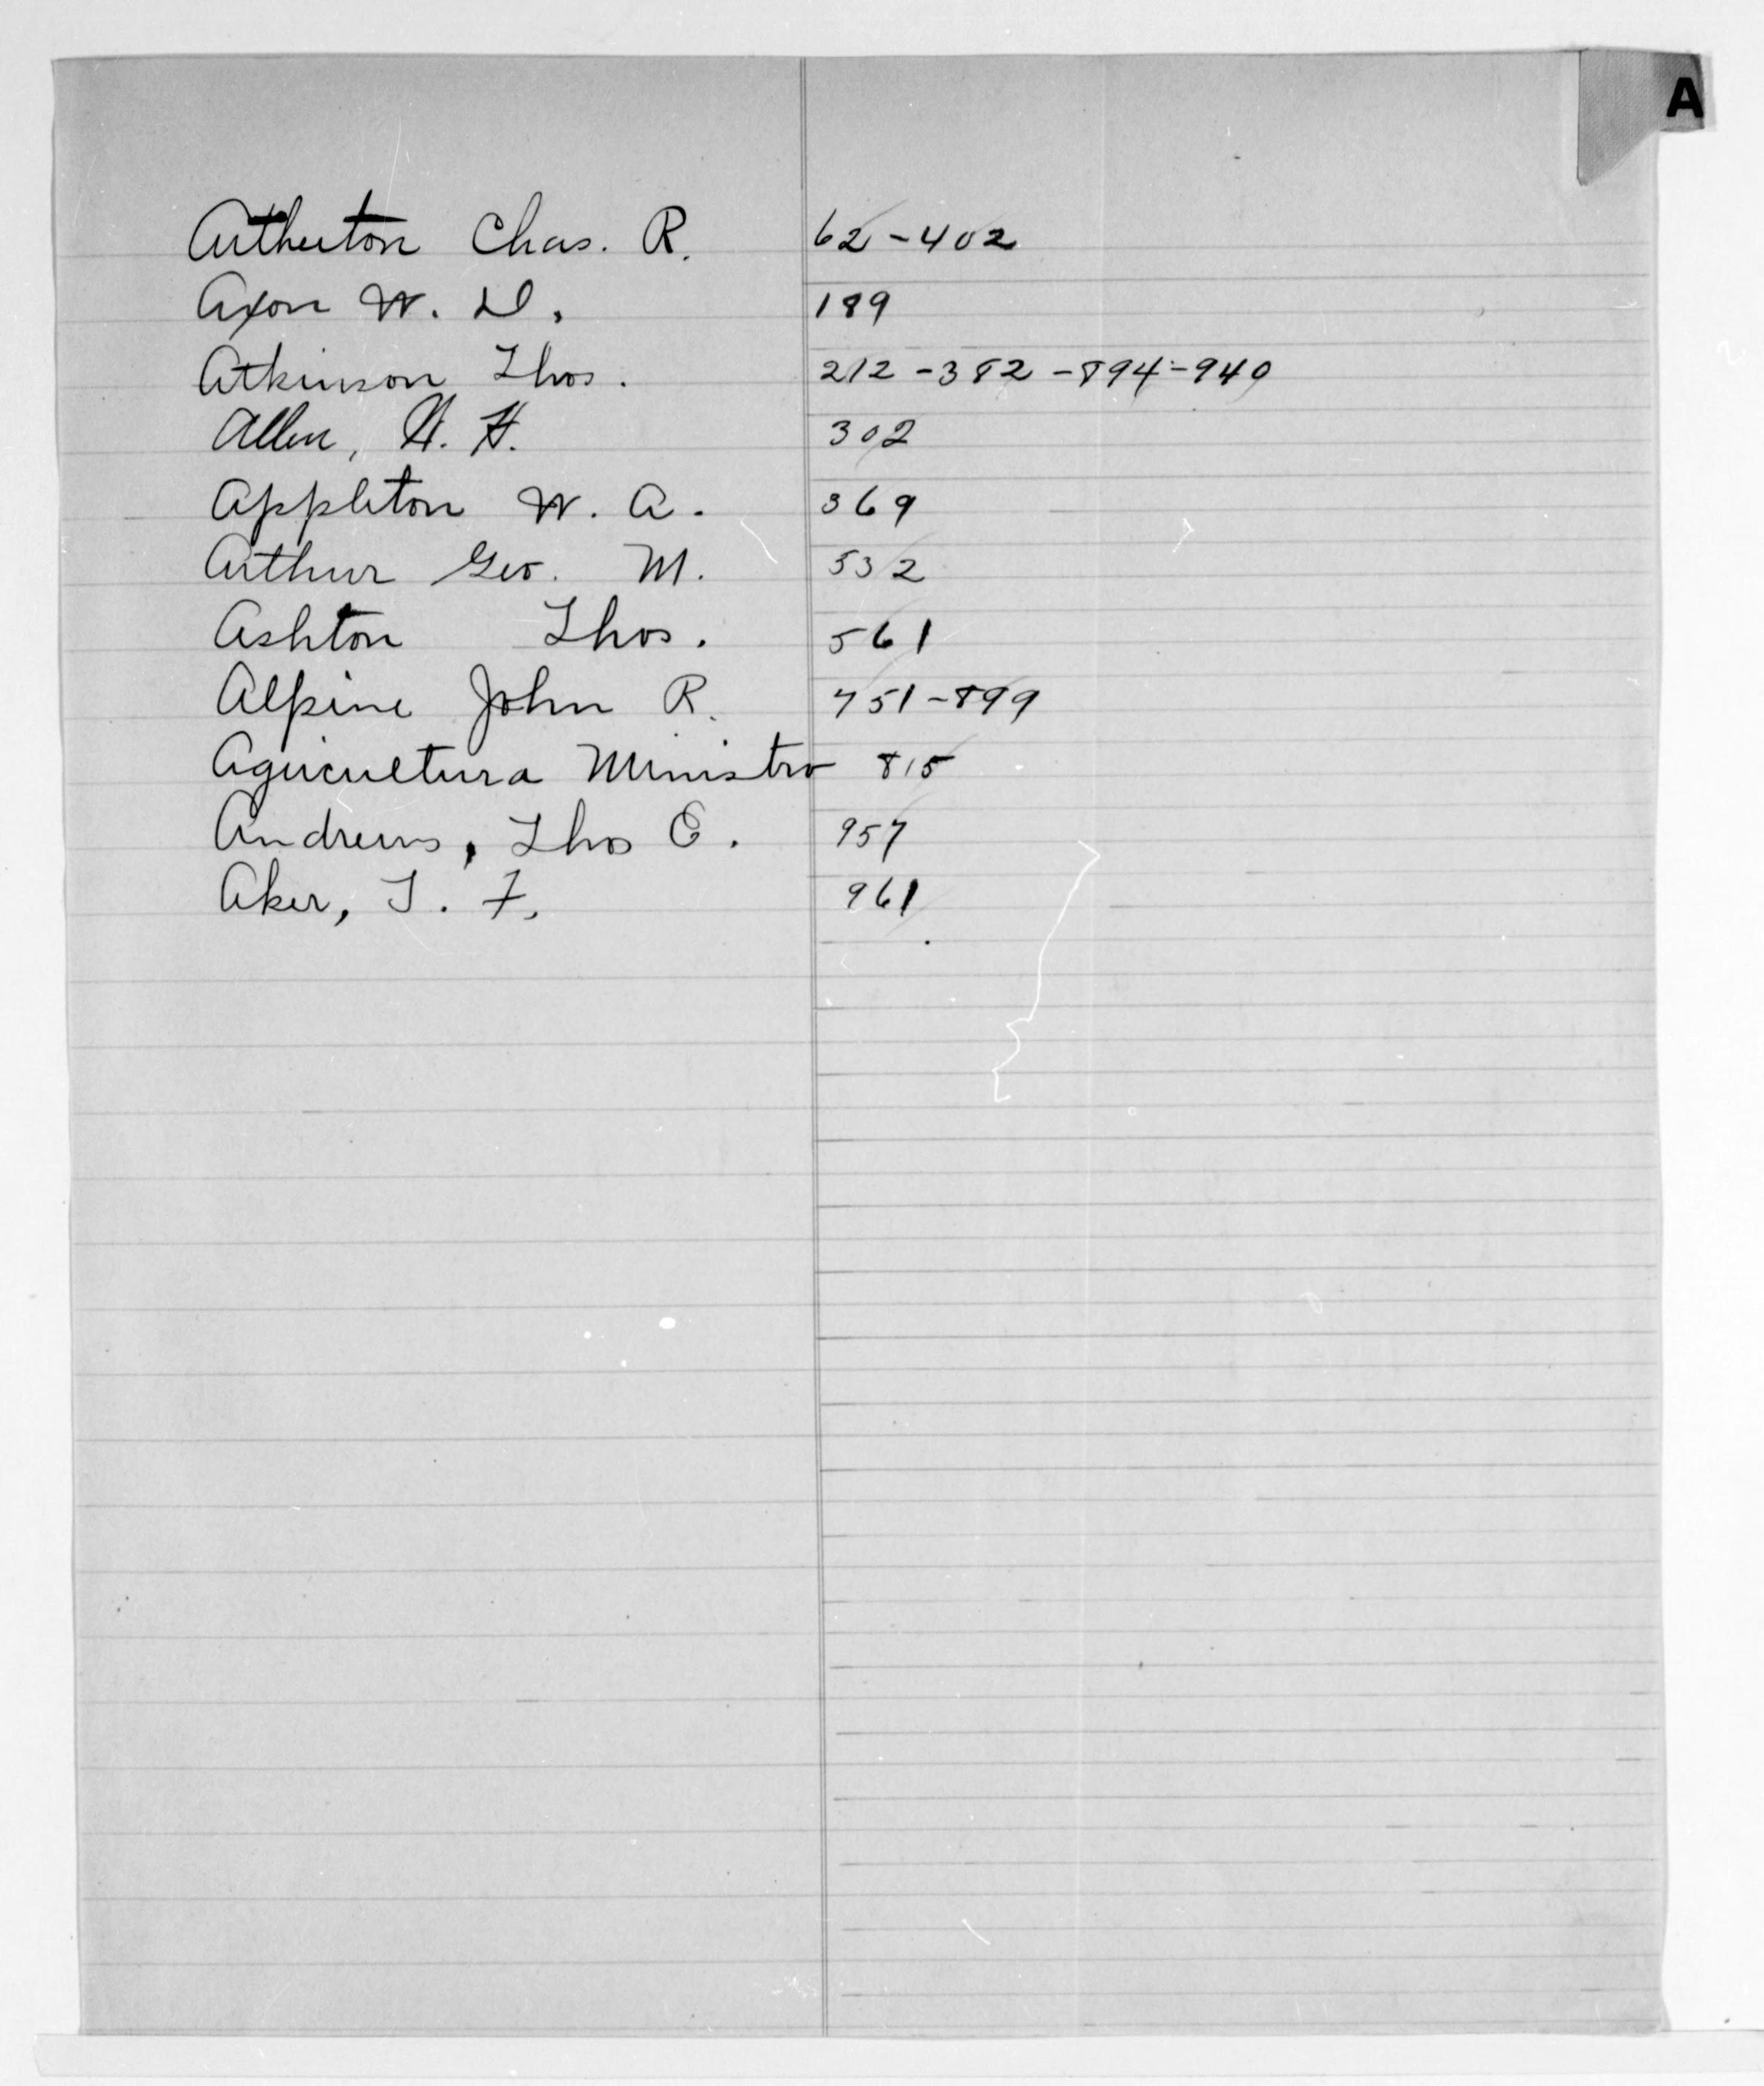 A
Atherton Chas. R. 62-402
Axon W. D. 189
Atkinson Thos. 212-382-894-940
Allen, H. H. 302
Appleton W. A. 369
Arthur Geo. M. 532
Ashton Thos. 561
Alpine John R. 751-899
Agricultura Ministro 815
Andrews, Thos E. 957
Aker, T. F. 961